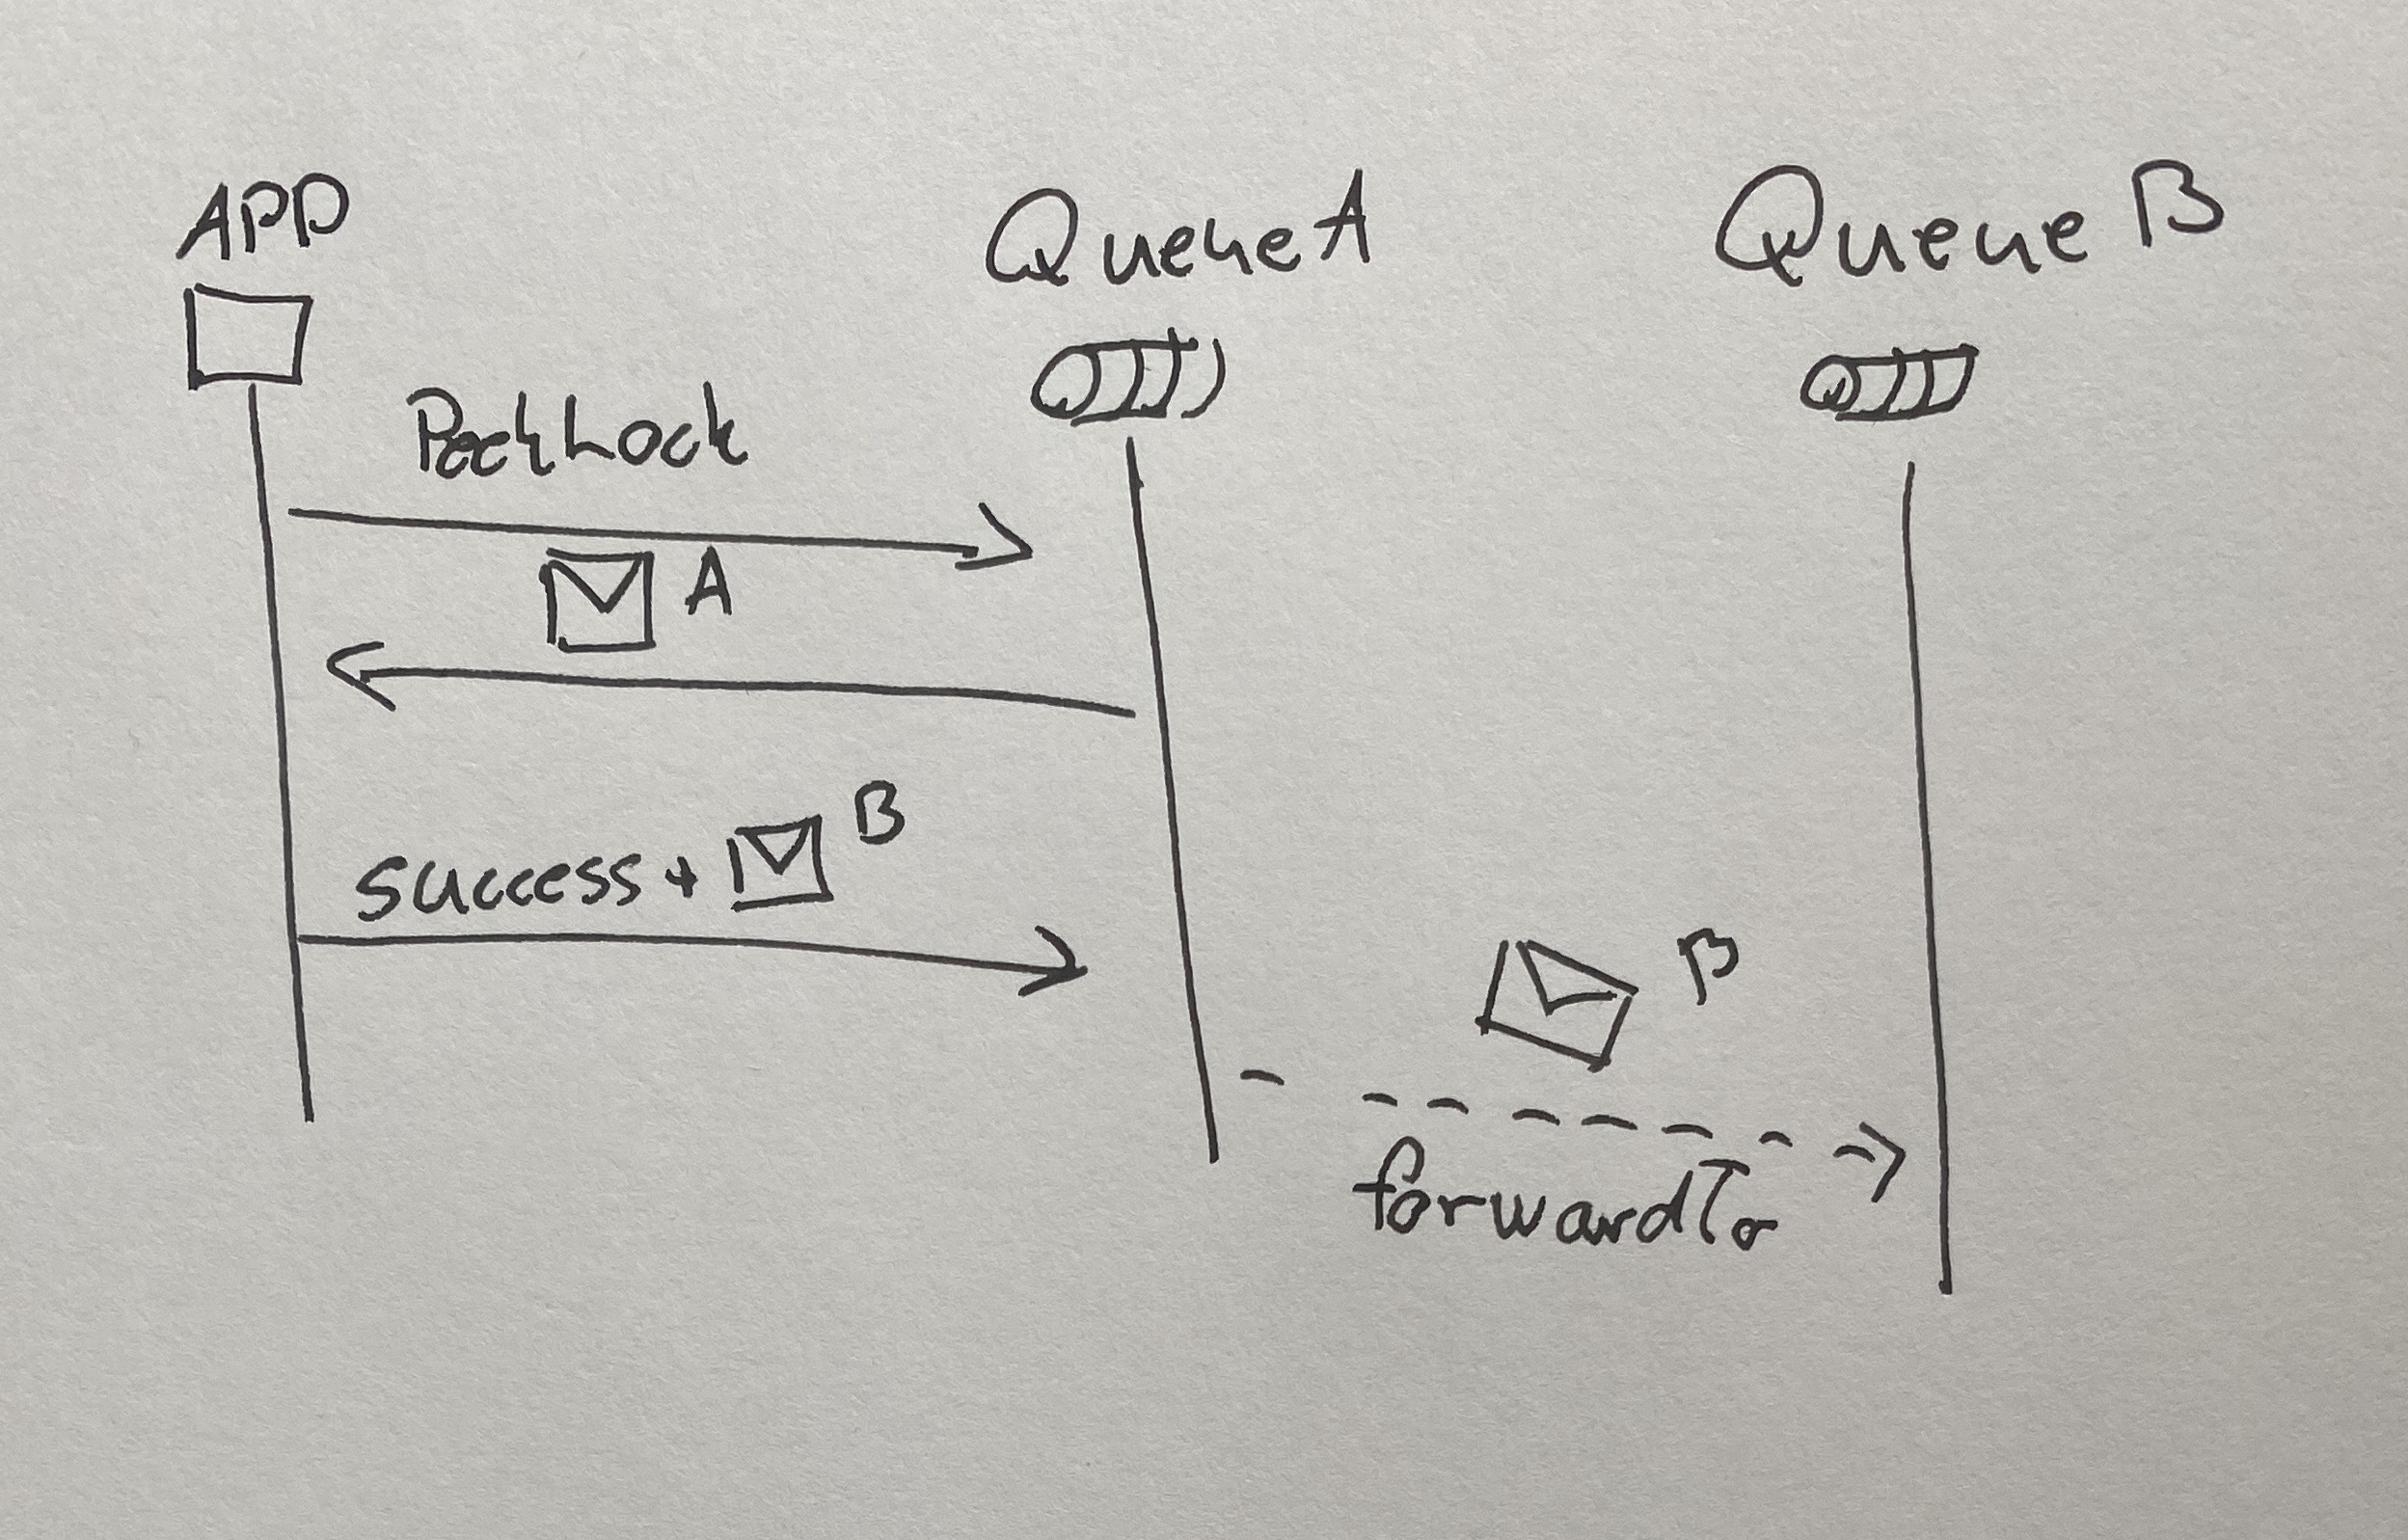 APP
Queue A
Queue B
PeekLock
A
success + B
B
forwardTo